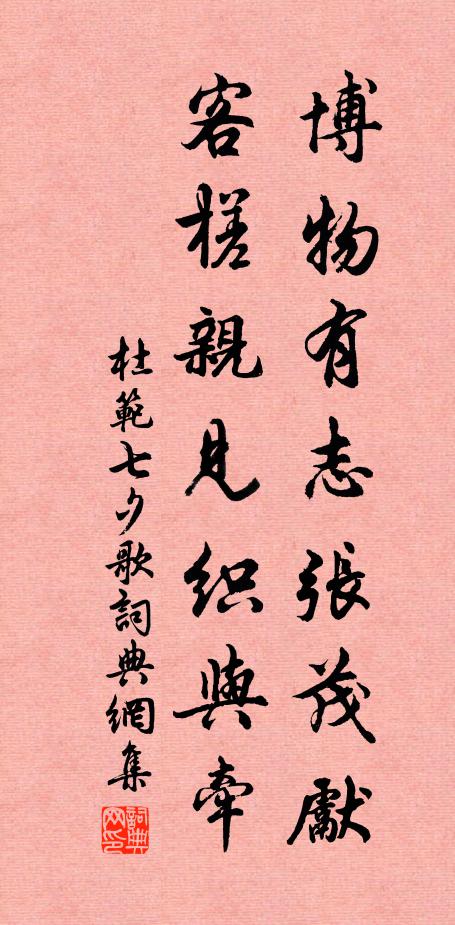 博物有志張茂獻
客槎親見织與牽
杜範七夕歌詞典網集
詞典网印